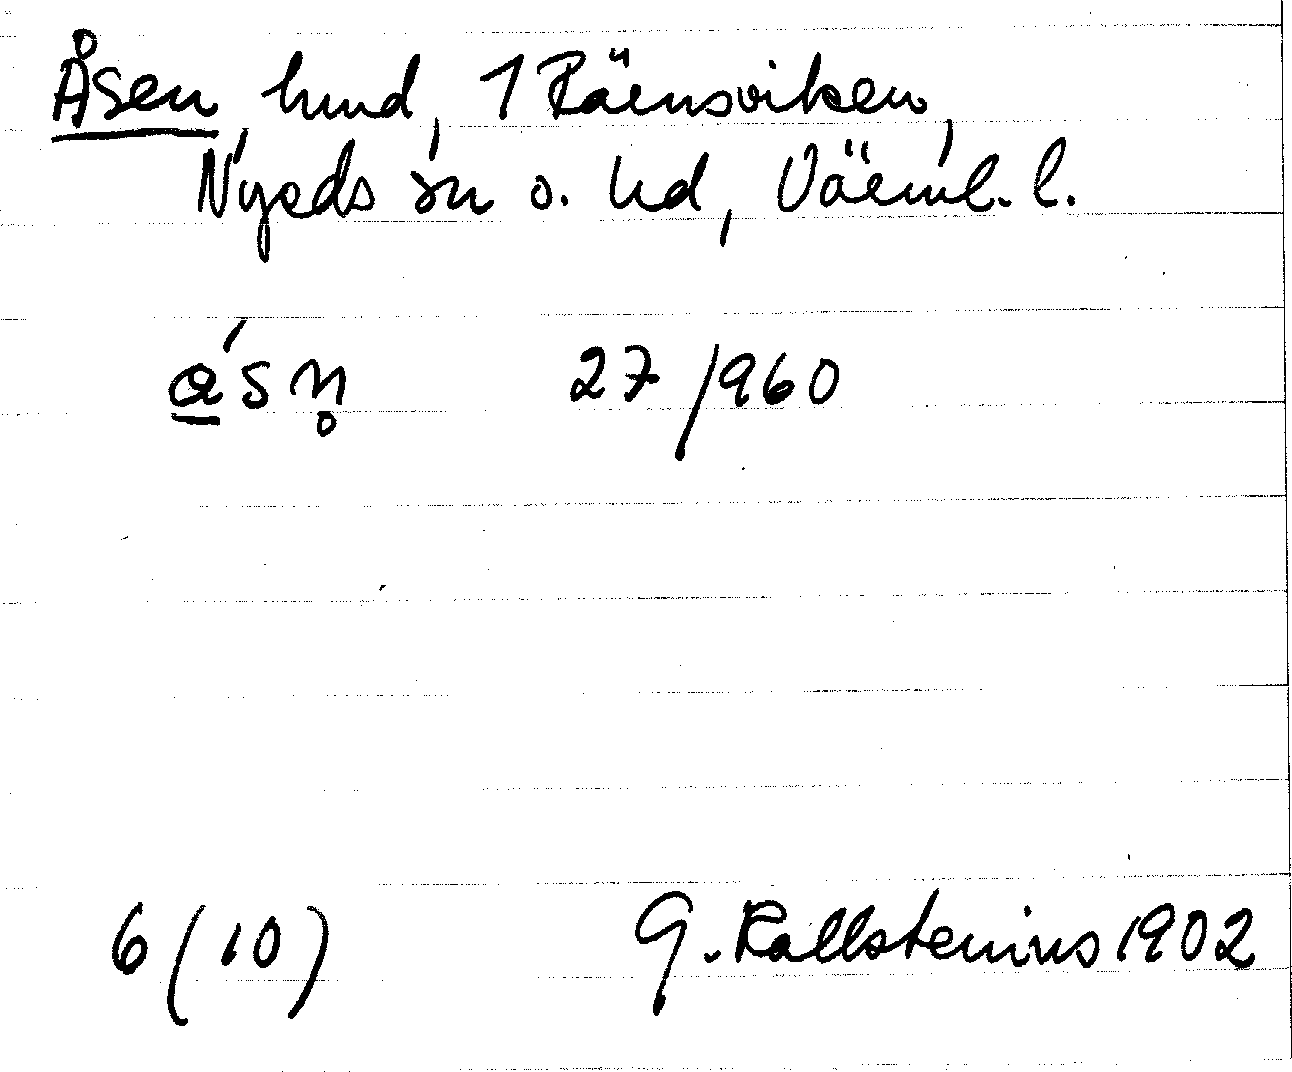 Åsen, hmd, 1 Ränsviken,
Nyeds sn o. hd, Värml. l.
ǻsn̥ 27/960
6 (10) G. Kallstenius 1902